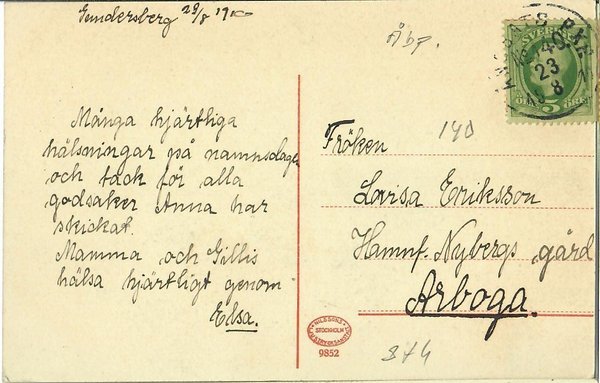 Gundersberg 23/8 1910
Många hjärtliga
hälsningar på namnsdagen
och tack för alla
godsaker Anna har
skickat.
Mamma och Gillis
hälsa hjärtligt genom
Elsa.
Åbp.
SVERIGE
5 ÖRE
PKXP
140
23
8
140
Fröken
Lovisa Eriksson
Hamnf. Nybergs gård
Arboga.
STOCKHOLM
9852
374